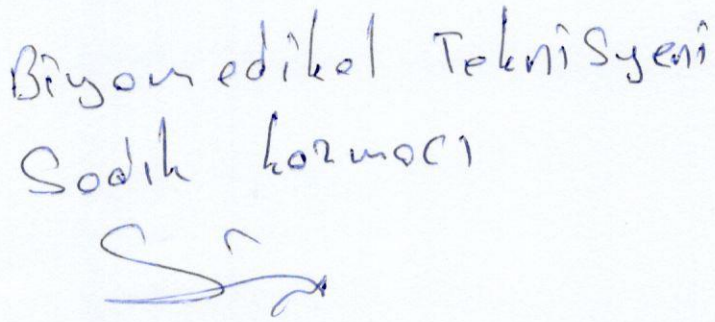 Biyomedikal Teknisyeni
Sadık kazmacı